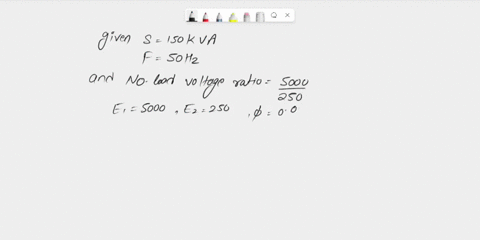 given S = 150 kVA
F = 50Hz
and No. load voltage ratio = 5000/250
E1 = 5000 , E2 = 250 , ϕ = 0.0